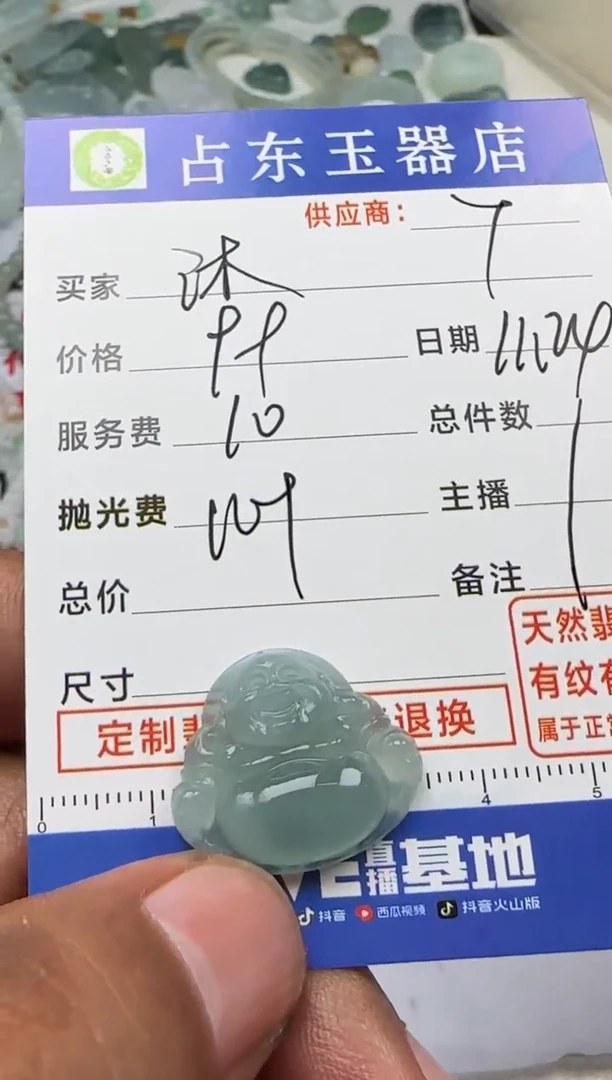 占东玉器店
供应商:
买家 沐
价格 99 日期 11.24
服务费 10 总件数 1
抛光费 109 主播
总价 备注
尺寸
定制 退换
天然翡
有纹有
属于正常
0 1 4 5
直播基地
抖音 西瓜视频 抖音火山版